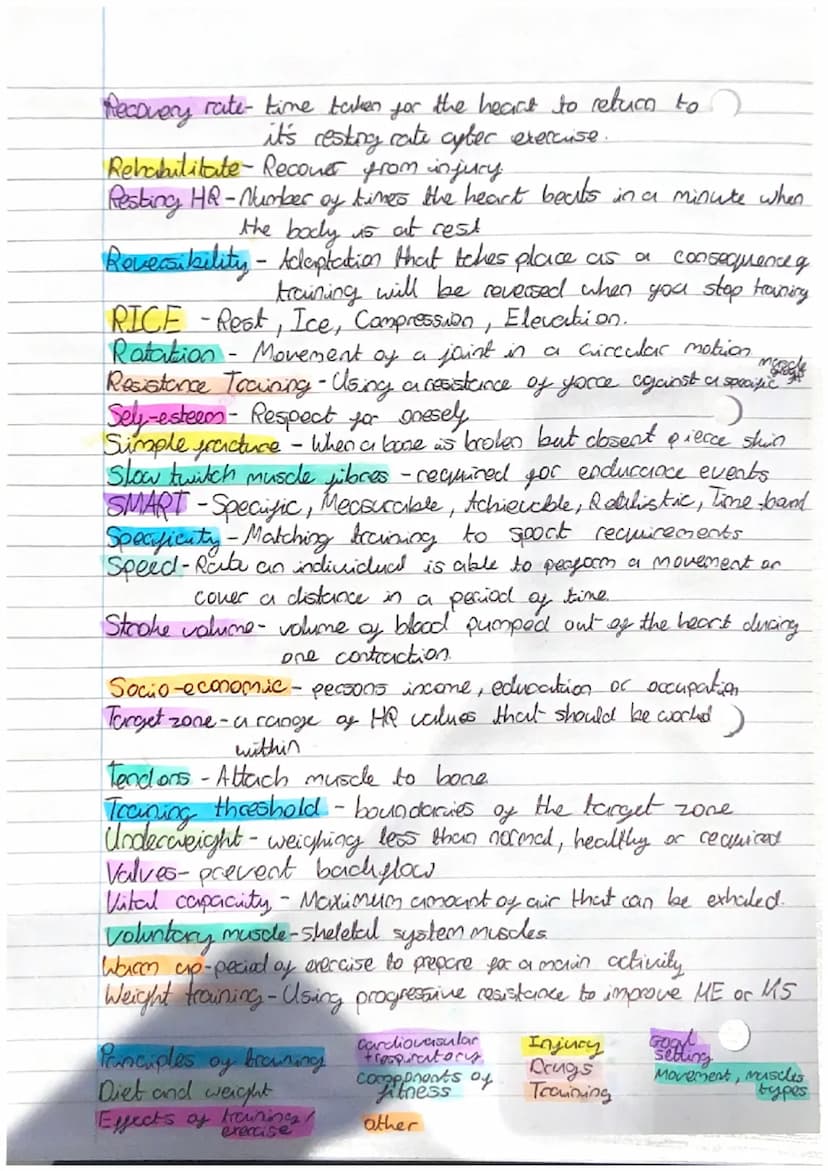 Recovery rate- time taken for the heart to return to
it's resting rate after exercise.
Rehabilitate - Recover from injury
Resting HR - Number of times the heart beats in a minute when
the body is at rest
Reversibility - Adaptation that takes place as a consequence of
training will be reversed when you stop training
RICE - Rest, Ice, Compression, Elevation.
Rotation - Movement of a joint in a circular motion
Resistance Training - Using a resistance of force against a specific muscle
Self-esteem - Respect for onesely
Simple fracture - When a bone is broken but doesnt pierce skin
Slow twitch muscle fibres - required for endurance events
SMART - Specific, Measurable, Achievable, Realistic, Time-band
Specificity - Matching training to sport requirements
Speed - Rate an individual is able to perform a movement or
cover a distance in a period of time.
Stroke volume - volume of blood pumped out of the heart during
one contraction.
Socio-economic - persons income, education or occupation
Target zone - a range of HR values that should be worked
within
Tendons - Attach muscle to bone
Training threshold - boundaries of the target zone
Underweight - weighing less than normal, healthy or required
Valves - prevent backflow
Vital capacity - Maximum amount of air that can be exhaled.
Voluntary muscle - skeletal system muscles
Warm up - period of exercise to prepare for a main activity
Weight training - Using progressive resistance to improve ME or MS
Principles of training
Diet and weight
Effects of training/
exercise
cardiovasular
+ respiratory
components of
fitness
other
Injury
Drugs
Training
Goal
setting
Movement, muscles
types